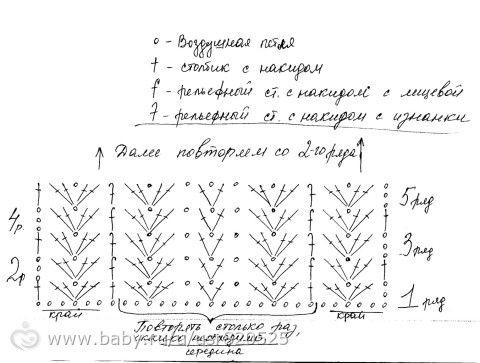 о - Воздушная петля
† - столбик с накидом
f - рельефный ст. с накидом с лицевой
7 - рельефный ст. с накидом с изнанки
Далее повторяем со 2-го ряда
5 ряд
4 р.
3 ряд
2 р
1 ряд
край
край
Повторять столько раз,
сколько необходимо,
середина
www.baby.ru